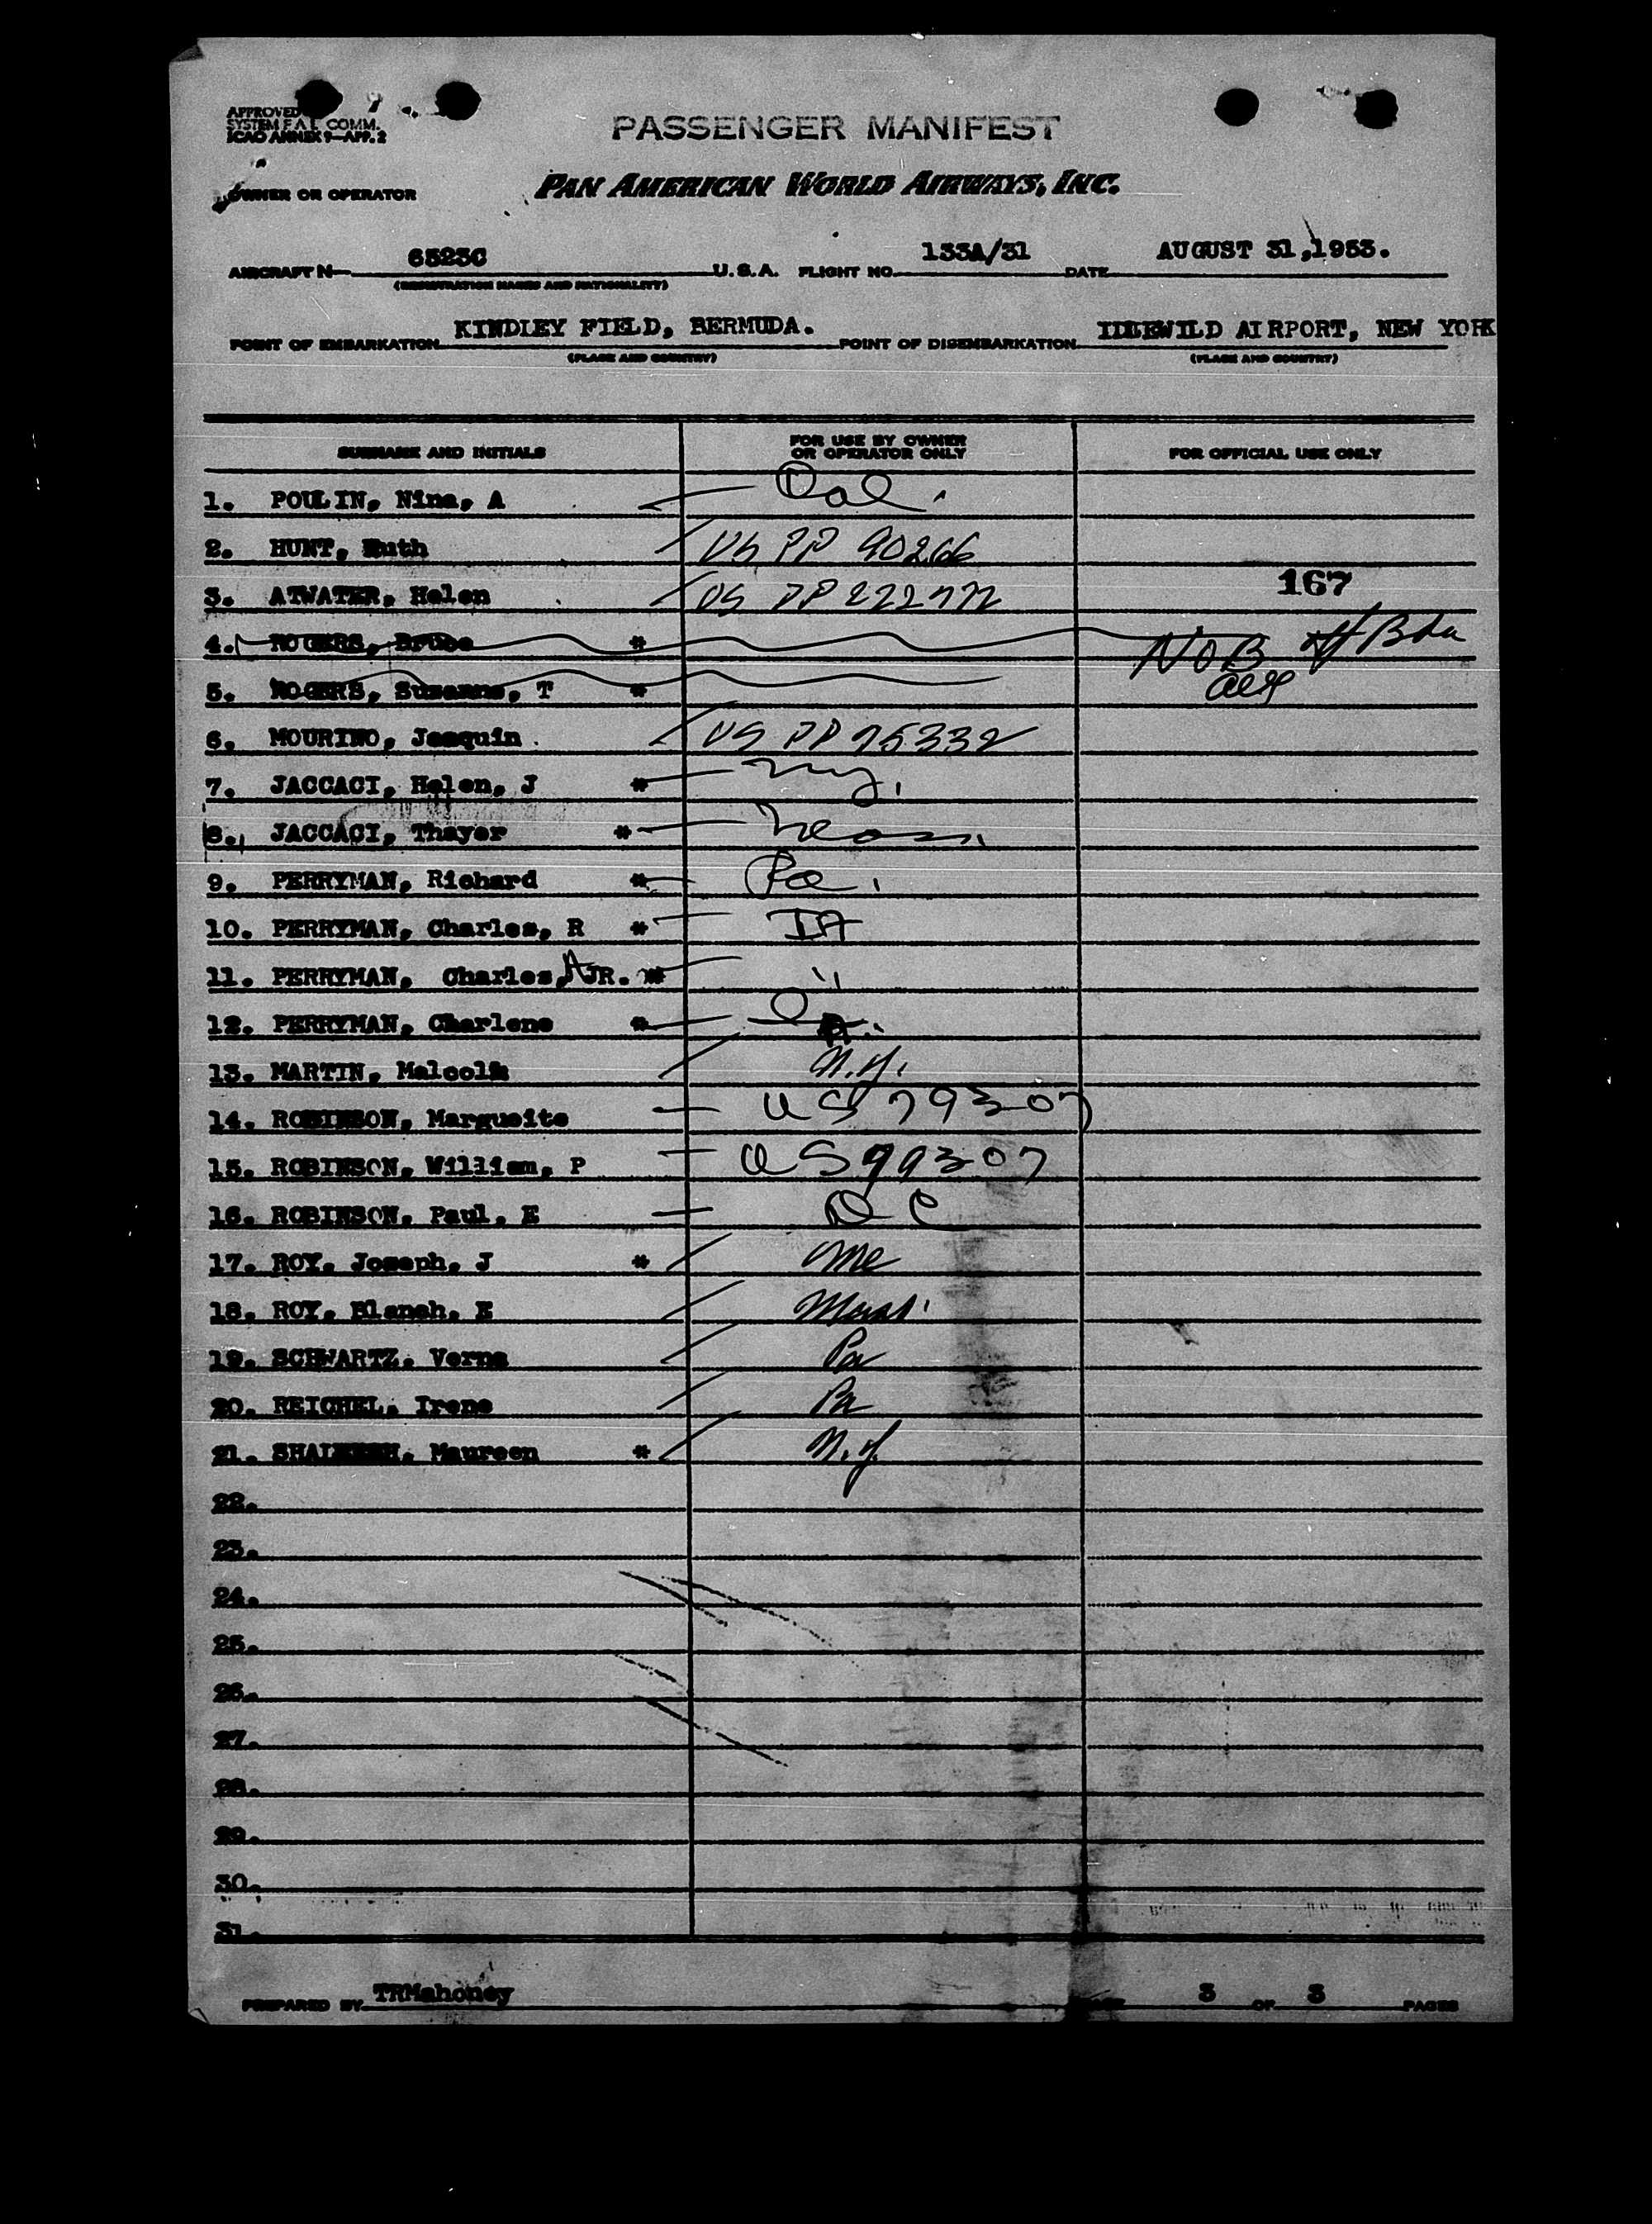 APPROVED
SYSTEM F.A.L. COMM.
ICAO ANNEX 9—APP. 2
PASSENGER MANIFEST
OWNER OR OPERATOR PAN AMERICAN WORLD AIRWAYS, INC.
AIRCRAFT N— 6523C U.S.A. FLIGHT NO. 133A/31 DATE AUGUST 31,1953.
(REGISTRATION MARKS AND NATIONALITY)
POINT OF EMBARKATION KINDLEY FIELD, BERMUDA. POINT OF DISEMBARKATION IDLEWILD AIRPORT, NEW YORK
(PLACE AND COUNTRY) (PLACE AND COUNTRY)
SURNAME AND INITIALS FOR USE BY OWNER OR OPERATOR ONLY FOR OFFICIAL USE ONLY
1. POULIN, Nina, A Cal.
2. HUNT, Ruth US PP 90266
3. ATWATER, Helen US PP 222772 167
4. ROGERS, Bruce * NOB off Bda
5. ROGERS, Suzanne, T *
6. MOURINO, Joaquin US PP 75332
7. JACCACI, Helen, J * NY.
8. JACCACI, Thayer * Mass.
9. PERRYMAN, Richard * Pa.
10. PERRYMAN, Charles, R * IA
11. PERRYMAN, Charles, A JR. * "
12. PERRYMAN, Charlene *
13. MARTIN, Malcolm N.Y.
14. ROBINSON, Margueite US 79307
15. ROBINSON, William, P US 99307
16. ROBINSON, Paul, E D C
17. ROY, Joseph, J * Me
18. ROY, Blanch, E Mass.
19. SCHWARTZ, Verna Pa
20. REICHEL, Irene Pa
21. Maureen * N.Y.
22.
23.
24.
25.
26.
27.
28.
29.
30.
31.
PREPARED BY TRMahoney PAGE 3 OF 3 PAGES